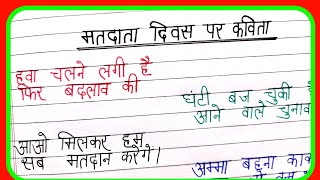 मतदाता दिवस पर कविता
हवा चलने लगी है
फिर बदलाव की
घंटी बज चुकी
आने वाले चुनाव
आओ मिलकर हम
सब मतदान करेंगे।
अम्मा बहना